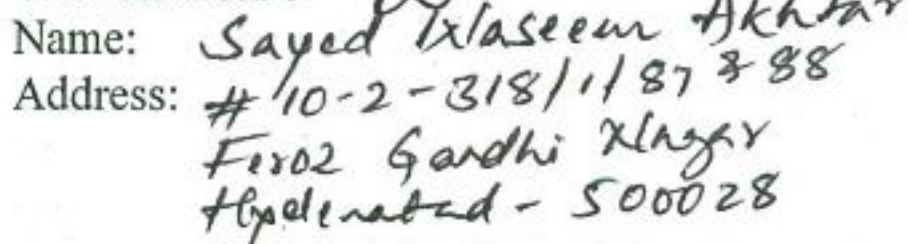 Name: Sayed Waseem Akhtar
Address: # 10-2-318/1/87 & 88
Feroz Gandhi Nagar
Hyderabad - 500028